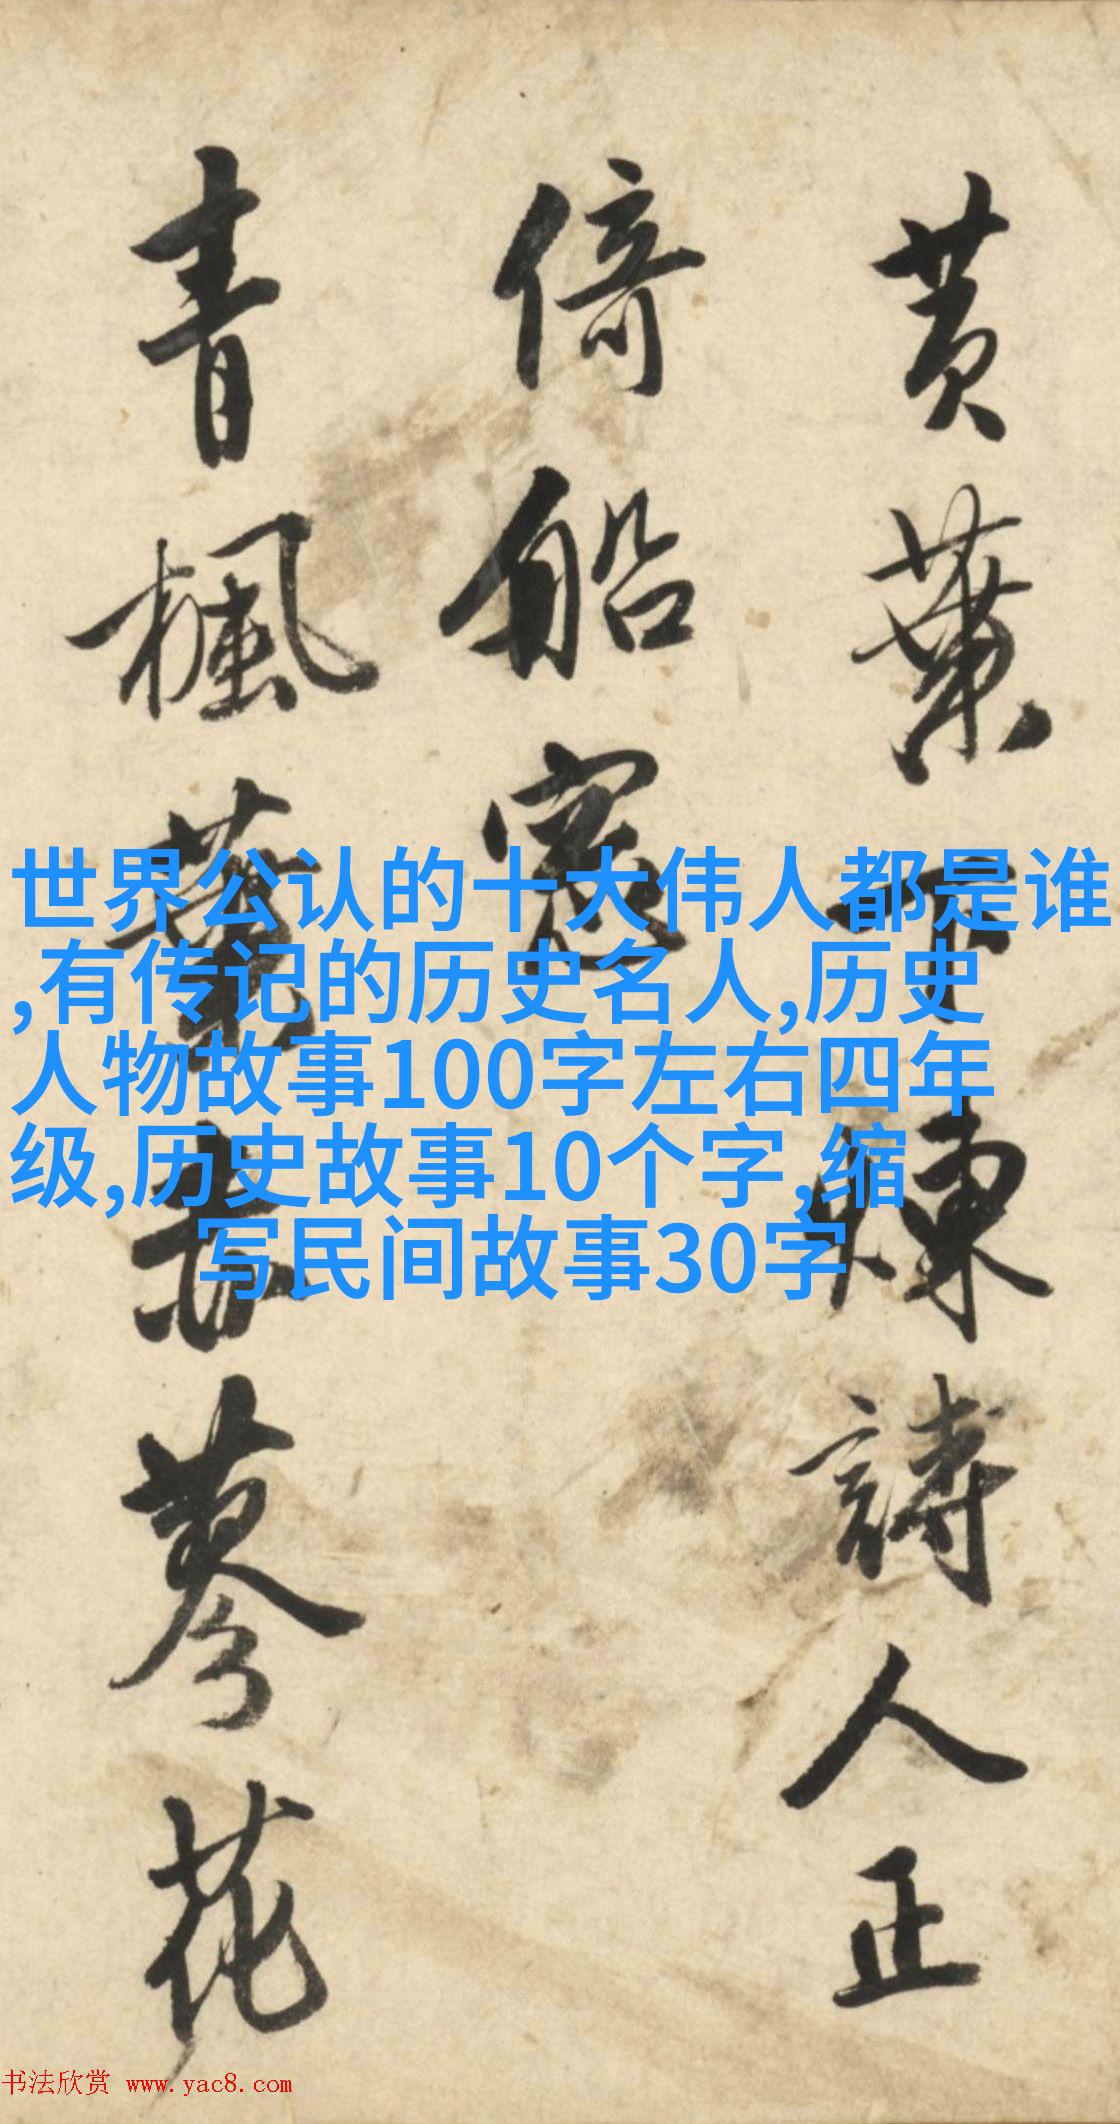 黄葉下陳詩人正
倚船窓
青楓葉赤蓼花
世界公认的十大伟人都是谁
,有传记的历史名人,历史
人物故事100字左右四年
级,历史故事10个字,缩
写民间故事30字
书法欣赏 www.yac8.com